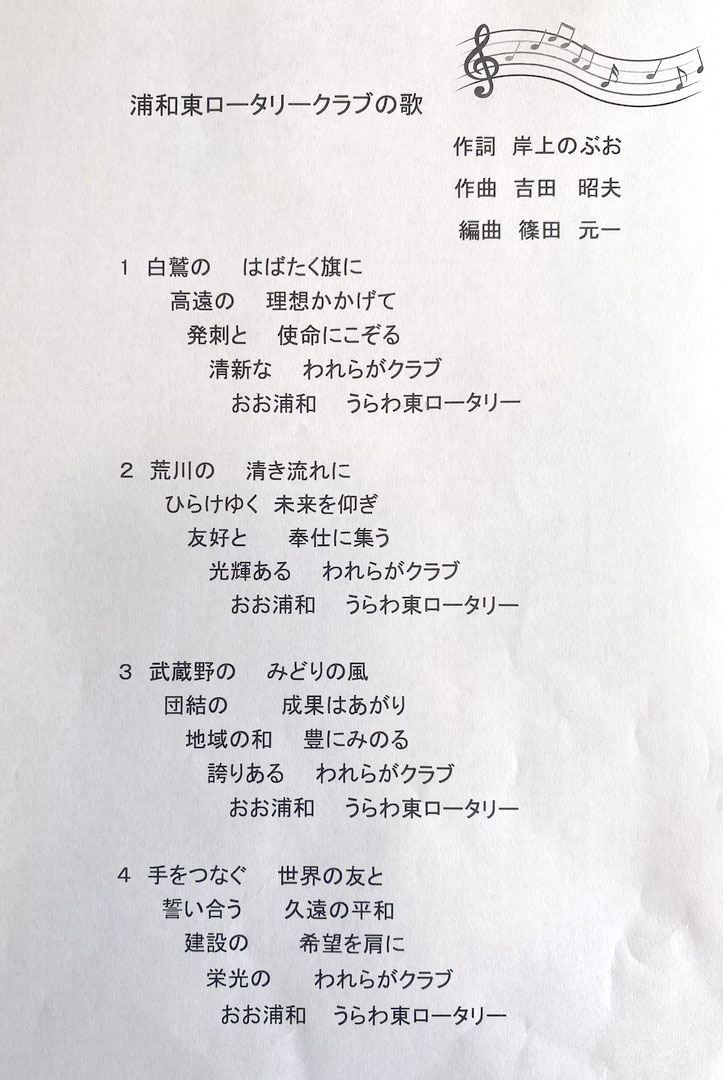 浦和東ロータリークラブの歌
作詞 岸上のぶお
作曲 吉田 昭夫
編曲 篠田 元一
1 白鷲の はばたく旗に
高遠の 理想かかげて
発刺と 使命にこぞる
清新な われらがクラブ
おお浦和 うらわ東ロータリー
2 荒川の 清き流れに
ひらけゆく 未来を仰ぎ
友好と 奉仕に集う
光輝ある われらがクラブ
おお浦和 うらわ東ロータリー
3 武蔵野の みどりの風
団結の 成果はあがり
地域の和 豊にみのる
誇りある われらがクラブ
おお浦和 うらわ東ロータリー
4 手をつなぐ 世界の友と
誓い合う 久遠の平和
建設の 希望を肩に
栄光の われらがクラブ
おお浦和 うらわ東ロータリー